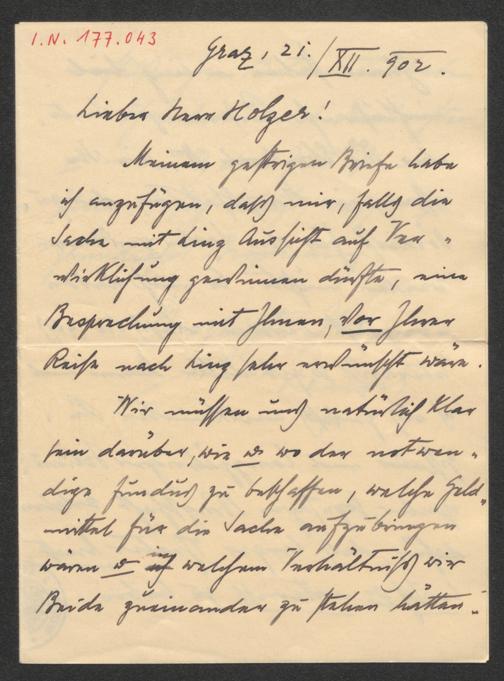 I.N. 177.043
Graz, 21./XII. 902.
Lieber Herr Holzer!
Meinem gestrigen Briefe habe
ich anzufügen, daß mir, falls die
Sache mit Linz Aussicht auf Ver-
wirklichung gewinnen dürfte, eine
Besprechung mit Ihnen, vor Ihrer
Reise nach Linz sehr erwünscht wäre.
Wir müssen uns natürlich klar
sein darüber, wie u. wo der notwen-
dige Fundus zu beschaffen, welche Geld-
mittel für die Sache aufzubringen
wären u. in welchem Verhältniß wir
Beide zueinander zu stehen hätten.